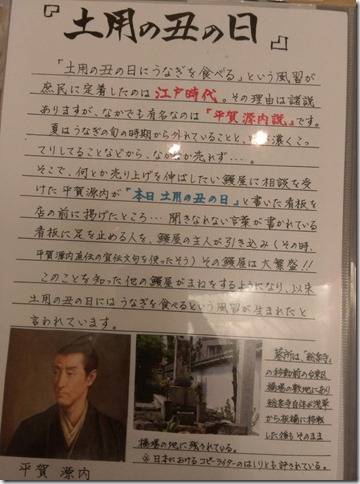 『土用の丑の日』
「土用の丑の日にうなぎを食べる」という風習が
庶民に定着したのは江戸時代。その理由は諸説
ありますが、なかでも有名なのは「平賀源内説」です。
夏はうなぎの旬の時期から外れていることと、味が濃くこっ
てりしてることなどから、なかなか売れず…。
そこで、何とか売り上げを伸ばしたい鰻屋に相談を受
けた平賀源内が「本日 土用の丑の日」と書いた看板を
店の前に掲げたところ…聞きなれない言葉が書かれている
看板に足を止める人を、鰻屋の主人が引き込み(その時、
平賀源内直伝の宣伝文句を使ったそう)その鰻屋は大繁盛!!
このことを知った他の鰻屋がまねをするようになり、以来
土用の丑の日にはうなぎを食べるという風習が生まれたと
言われています。
墓所は、「総泉寺」
の移動前の台東区
橋場の敷地にあり
総泉寺自体は浅草
から板橋に移転
した後もそのまま
橋場の地に残されている。
※日本におけるコピーライターのはしりとも評されている。
平賀 源内